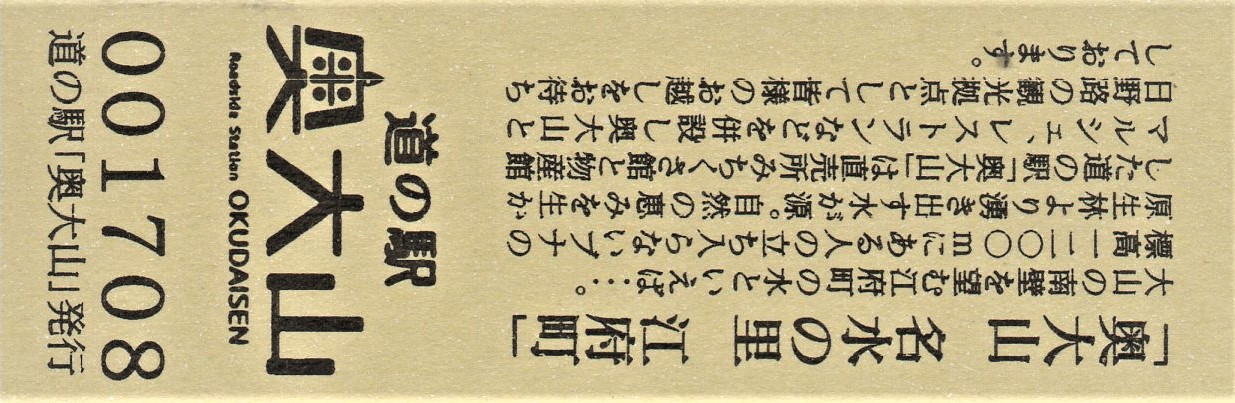 「奥大山　名水の里　江府町」
大山の南壁を望む江府町の水といえば…。
標高一二〇〇ｍにある人の立ち入らないブナの
原生林より湧き出す水が源。自然の恵みを生か
した道の駅「奥大山」は直売所みちくさ館と物産館
マルシェ、レストランなどを併設し奥大山と
日野路の観光拠点として皆様のお越しをお待ち
しております。
道の駅
奥大山
Roadside Station OKUDAISEN
001708
道の駅「奥大山」発行